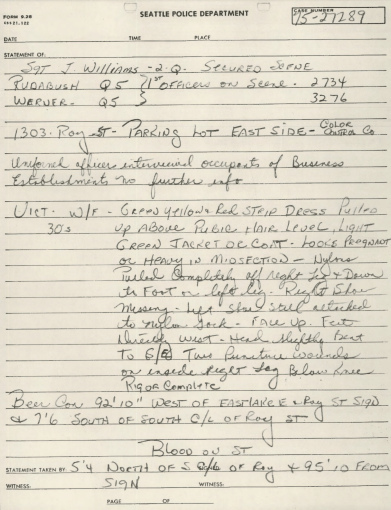 FORM 5.28
CSS 21.122
SEATTLE POLICE DEPARTMENT
CASE NUMBER
75-27289
DATE TIME PLACE
STATEMENT OF:
SGT J Williams - 2-Q. SECURED SCENE
RUDABUSH Q5 } 1ST OFFICERS ON SCENE - 2734
WERNER - Q5 } 3276
1303 - Roy ST - PARKING LOT EAST SIDE - COLOR CONTROL Co
Uniformed officer interviewed occupants of Business
Establishments no further info
VICT - W/F - GREEN yellow & Red STRIP DRESS Pulled
30's UP ABOVE PUBIC HAIR LEVEL, LIGHT
GREEN JACKET OR COAT - LOOKS PREGNANT
OR HEAVY IN MIDSECTION - Nylons
Pulled Completely off right leg & Down
to Foot on left leg. Right Shoe
Missing - left shoe still attached
to nylon sock - FACE UP, Feet
Directly west - Head slightly Bent
To S/E Two Puncture wounds
on inside Right leg Below Knee
RIGOR COMPLETE
Beer Can 92'10" WEST OF EASTLAKE E & Roy ST SIGN
& 7'6 SOUTH OF SOUTH C/L OF Roy ST
BLOOD ON ST
STATEMENT TAKEN BY: 5'4 NORTH OF S C/L OF Roy & 95'10 FROM
WITNESS: SIGN WITNESS:
PAGE OF